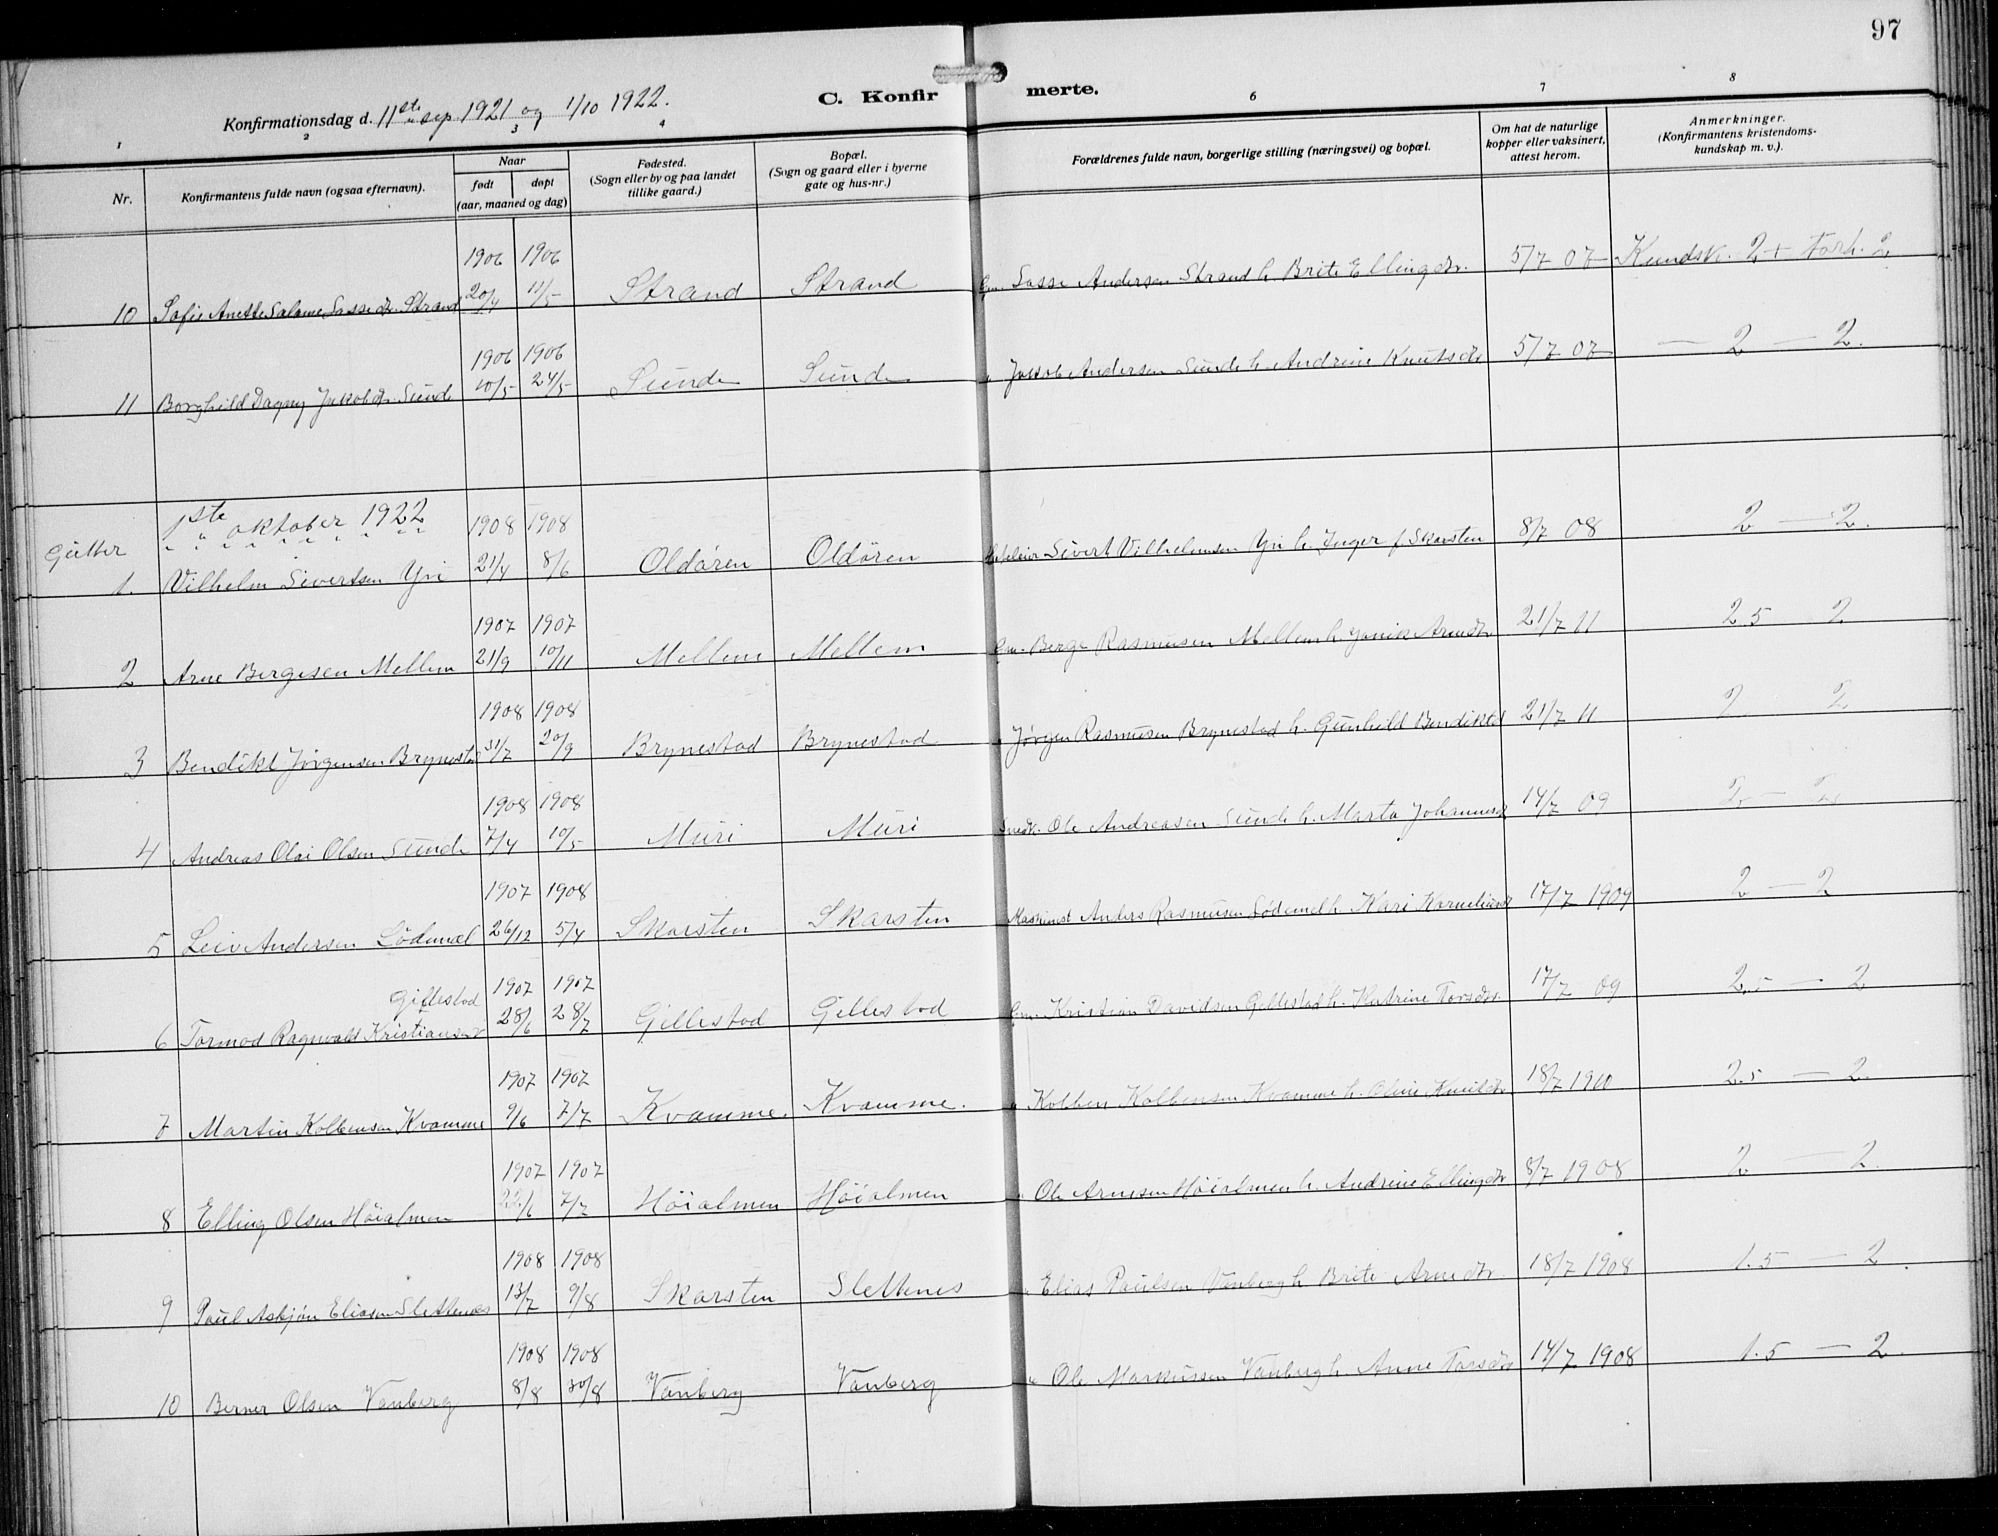 97
Konfirmationsdag d. 11te sep. 1921 og 1/10 1922.
C. Konfirmerte.
1 2 3 4 6 7 8
Nr.
Konfirmantens fulde navn (ogsaa efternavn).
Naar
født døpt
(aar, maaned og dag)
Fødested.
(Sogn eller by og paa landet
tillike gaard.)
Bopæl.
(Sogn og gaard eller i byerne
gate og hus-nr.)
Forældrenes fulde navn, borgerlige stilling (næringsvei) og bopæl.
Om hat de naturlige
kopper eller vaksinert,
attest herom.
Anmerkninger.
(Konfirmantens kristendoms-
kundskap m. v.).
1906 1906
10 Sofie Anette Salome Lassedtr. Strand 20/4 11/5 Strand Strand Gm. Lasse Andersen Strand h. Brite Ellingdtr. 5/7 07 Kundsk. 2+ Forh. 2
1906 1906
11 Borghild Dagny Jakobdtr. Sunde 10/5 24/5 Sunde Sunde " Jakob Andersen Sunde h. Andrine Knutsdtr 5/7 07 — 2 — 2.
1ste oktober 1922
Gutter
1908 1908
1. Vilhelm Sivertsen Yri 21/4 8/6 Oldøren Oldøren Sivert Vilhelmsen Yri h. Inger f. Skarsten 8/7 08 2 — 2.
1907 1907
2 Arne Bergesen Mellem 21/9 10/11 Mellem Mellem Gm. Berge Rasmusen Mellem h. Arnedtr. 21/7 11 2.5 2
1908 1908
3 Bendikt Jørgensen Brynestad 31/7 20/9 Brynestad Brynestad " Jørgen Rasmusen Brynestad h. Gunhild Bendiktd 21/7 11 2 2
1908 1908
4 Andreas Olai Olsen Sunde 7/4 10/5 Muri Muri Ole Andreasen Sunde h. Marta Johannesd 14/7 09 2 — 2
1907 1908
5 Leiv Andersen Lødemel 26/12 5/4 Skarsten Skarsten Maskinist Anders Rasmusen Lødemel h. Kari Korneliusd 17/7 1909 2 — 2
Gjellestad
1907 1907
6 Tormod Ragnvald Kristiansen 28/6 28/7 Gillestad Gellestad Gm. Kristian Davidsen Gellestad h. Katrine Torsdtr. 17/7 09 2.5 — 2
1907 1907
7 Martin Kolbensen Kvamme 9/6 7/7 Kvamme. Kvamme. " Kolben Kolbensen Kvamme h. Oline Knutdtr 18/7 1910 2.5 — 2.
1907 1907
8 Elling Olsen Høialmen 7/7 Høialmen Høialmen " Ole Arnesen Høialmen h. Andrine Ellingdtr 8/7 1908 2 — 2.
1908 1908
9 Paul Asbjørn Eliasen Slettenes 13/7 9/8 Skarsten Slettnes " Elias Paulsen Vanberg h. Brite Arnedtr. 18/7 1908 1.5 — 2.
1908 1908
10 Berner Olsen Vanberg 8/8 30/8 Vanberg Vanberg " Ole Markussen Vanberg h. Anne Torsdtr 14/7 1908 1.5 — 2.